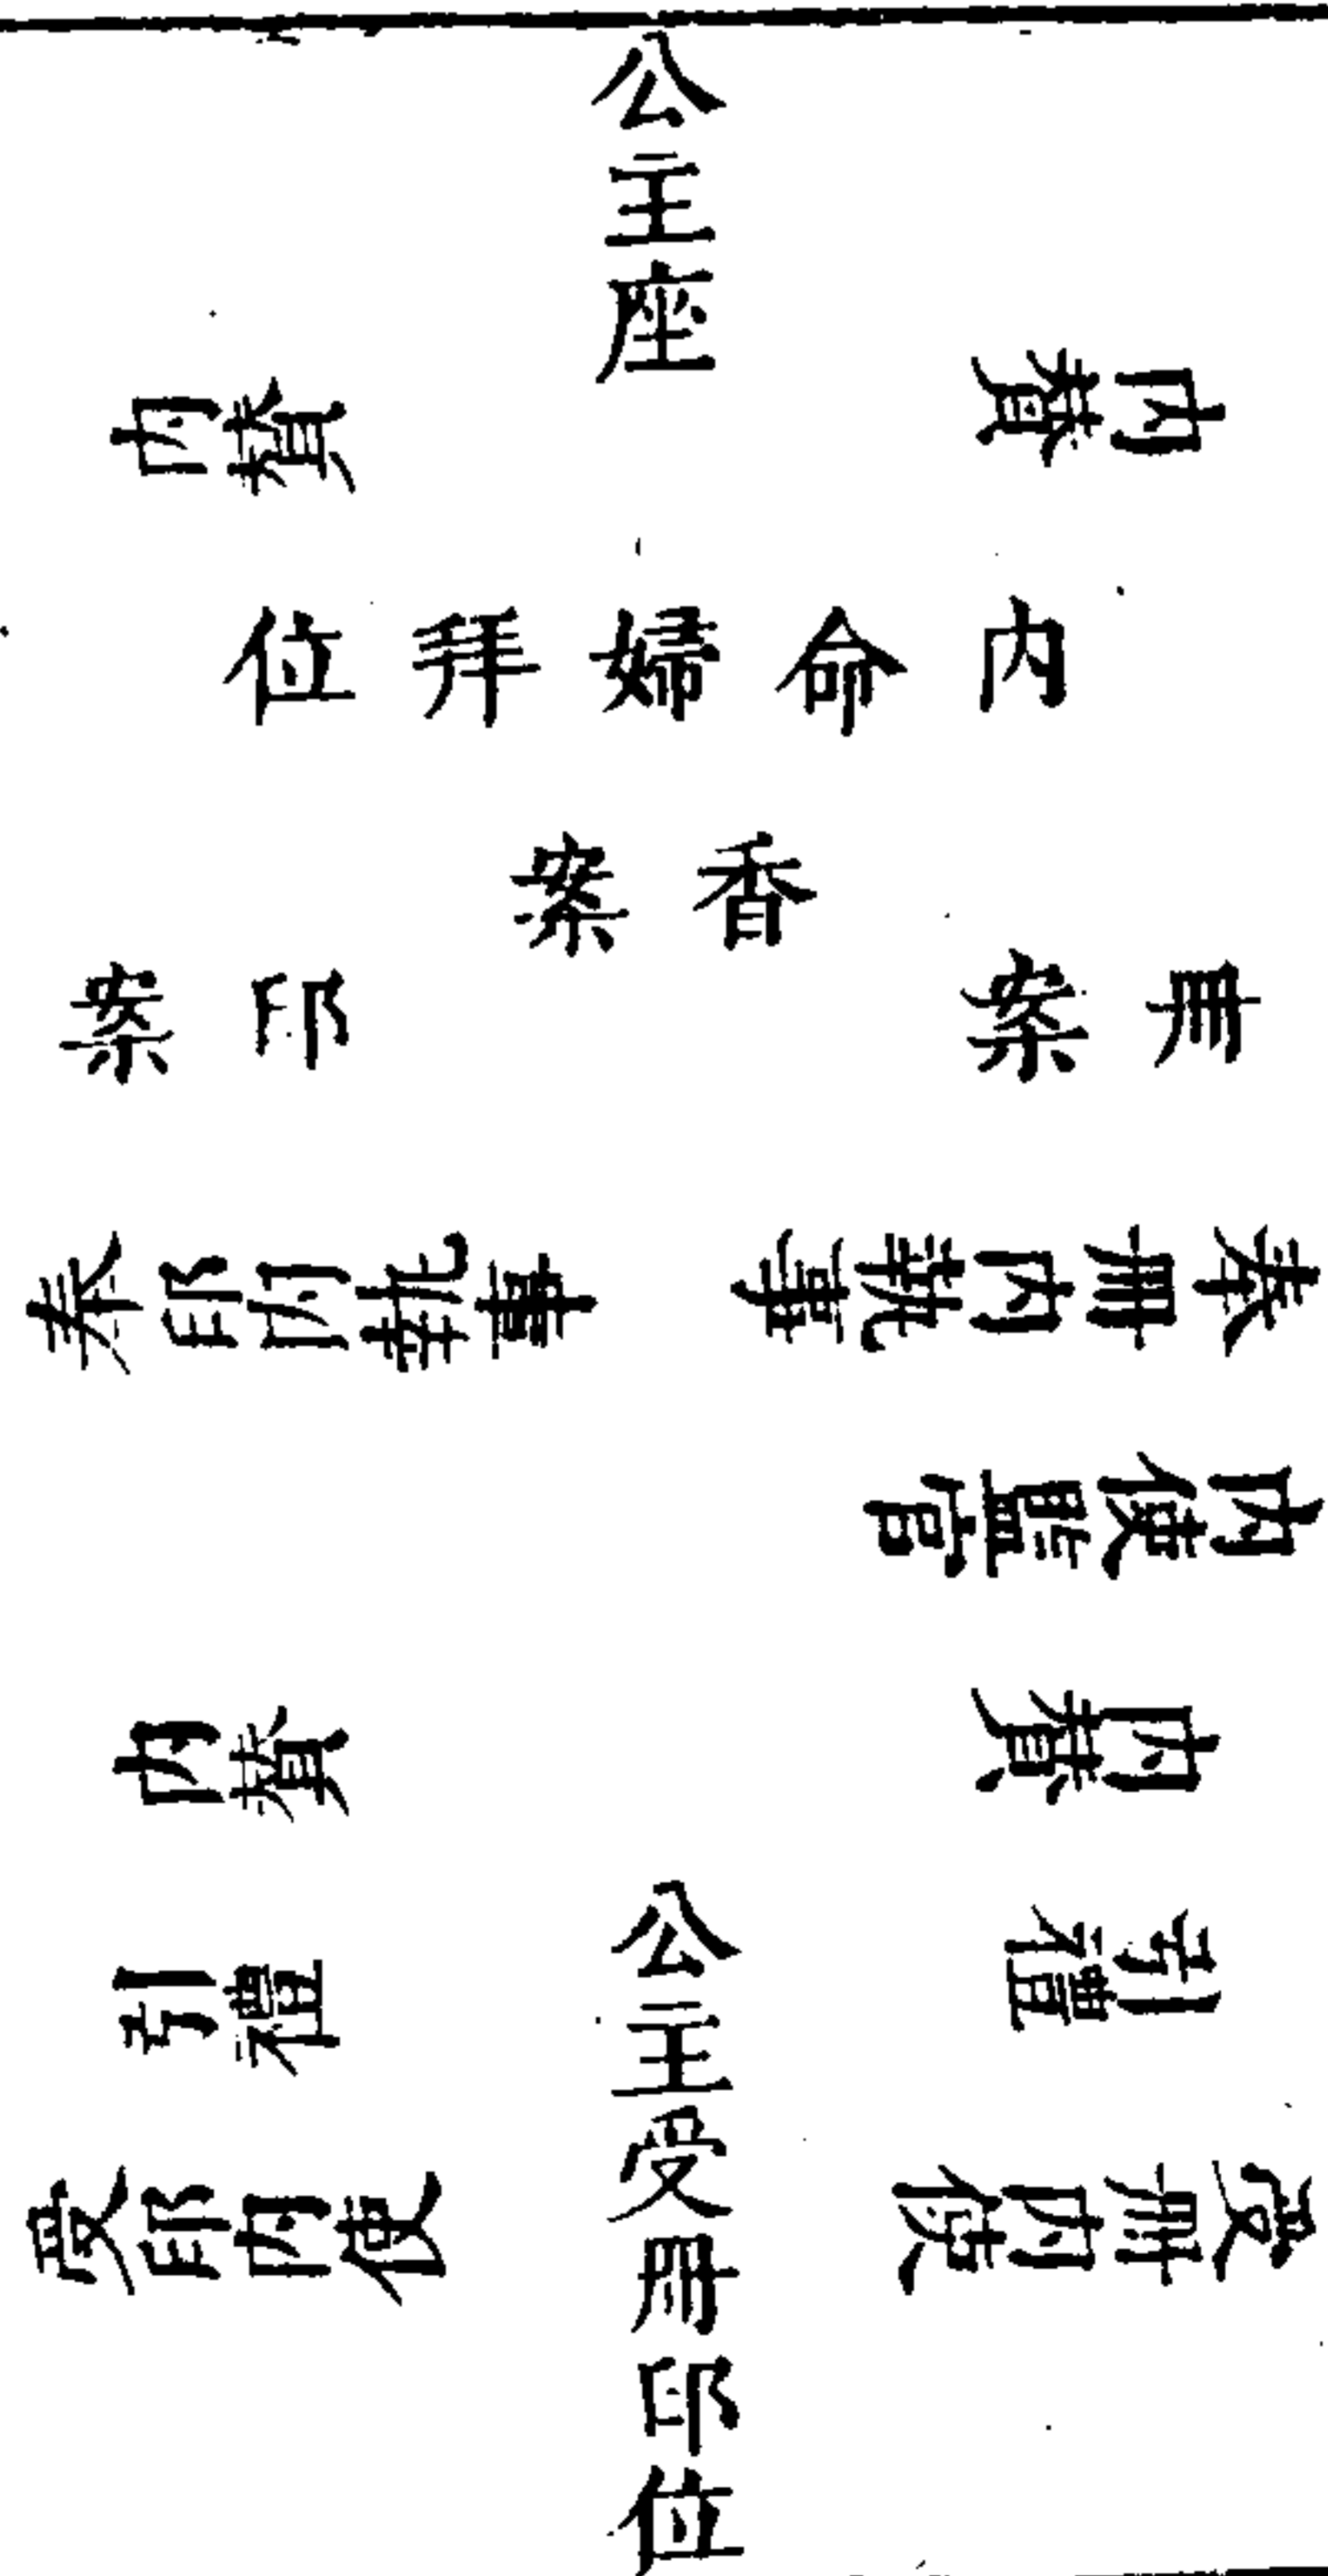 公主座
内贊
内贊
内命婦拜位
香案
冊案
印案
奉冊内執事
奉印内執事
内使監官
内贊
内贊
引禮
引禮
公主受冊印位
受冊内使
受印内使